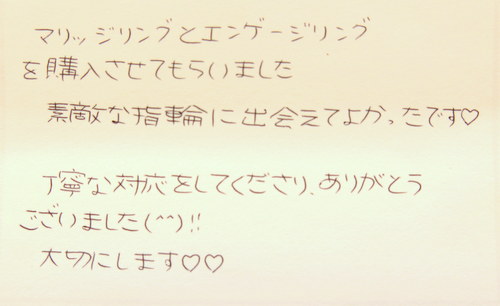 マリッジリングとエンゲージリング
を購入させてもらいました
素敵な指輪に出会えてよかったです♡
丁寧な対応をしてくださり、ありがとう
ございました(^^)!!
大切にします♡♡